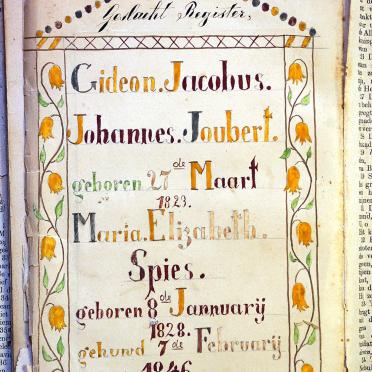 Geslacht Register,
Gideon. Jacobus.
Johannes. Joubert.
geboren 27 de Maart
1823.
Maria. Elizabeth.
Spies.
geboren 8 de Jannuarij
1828.
gehuwd 7 de Februarij
1846